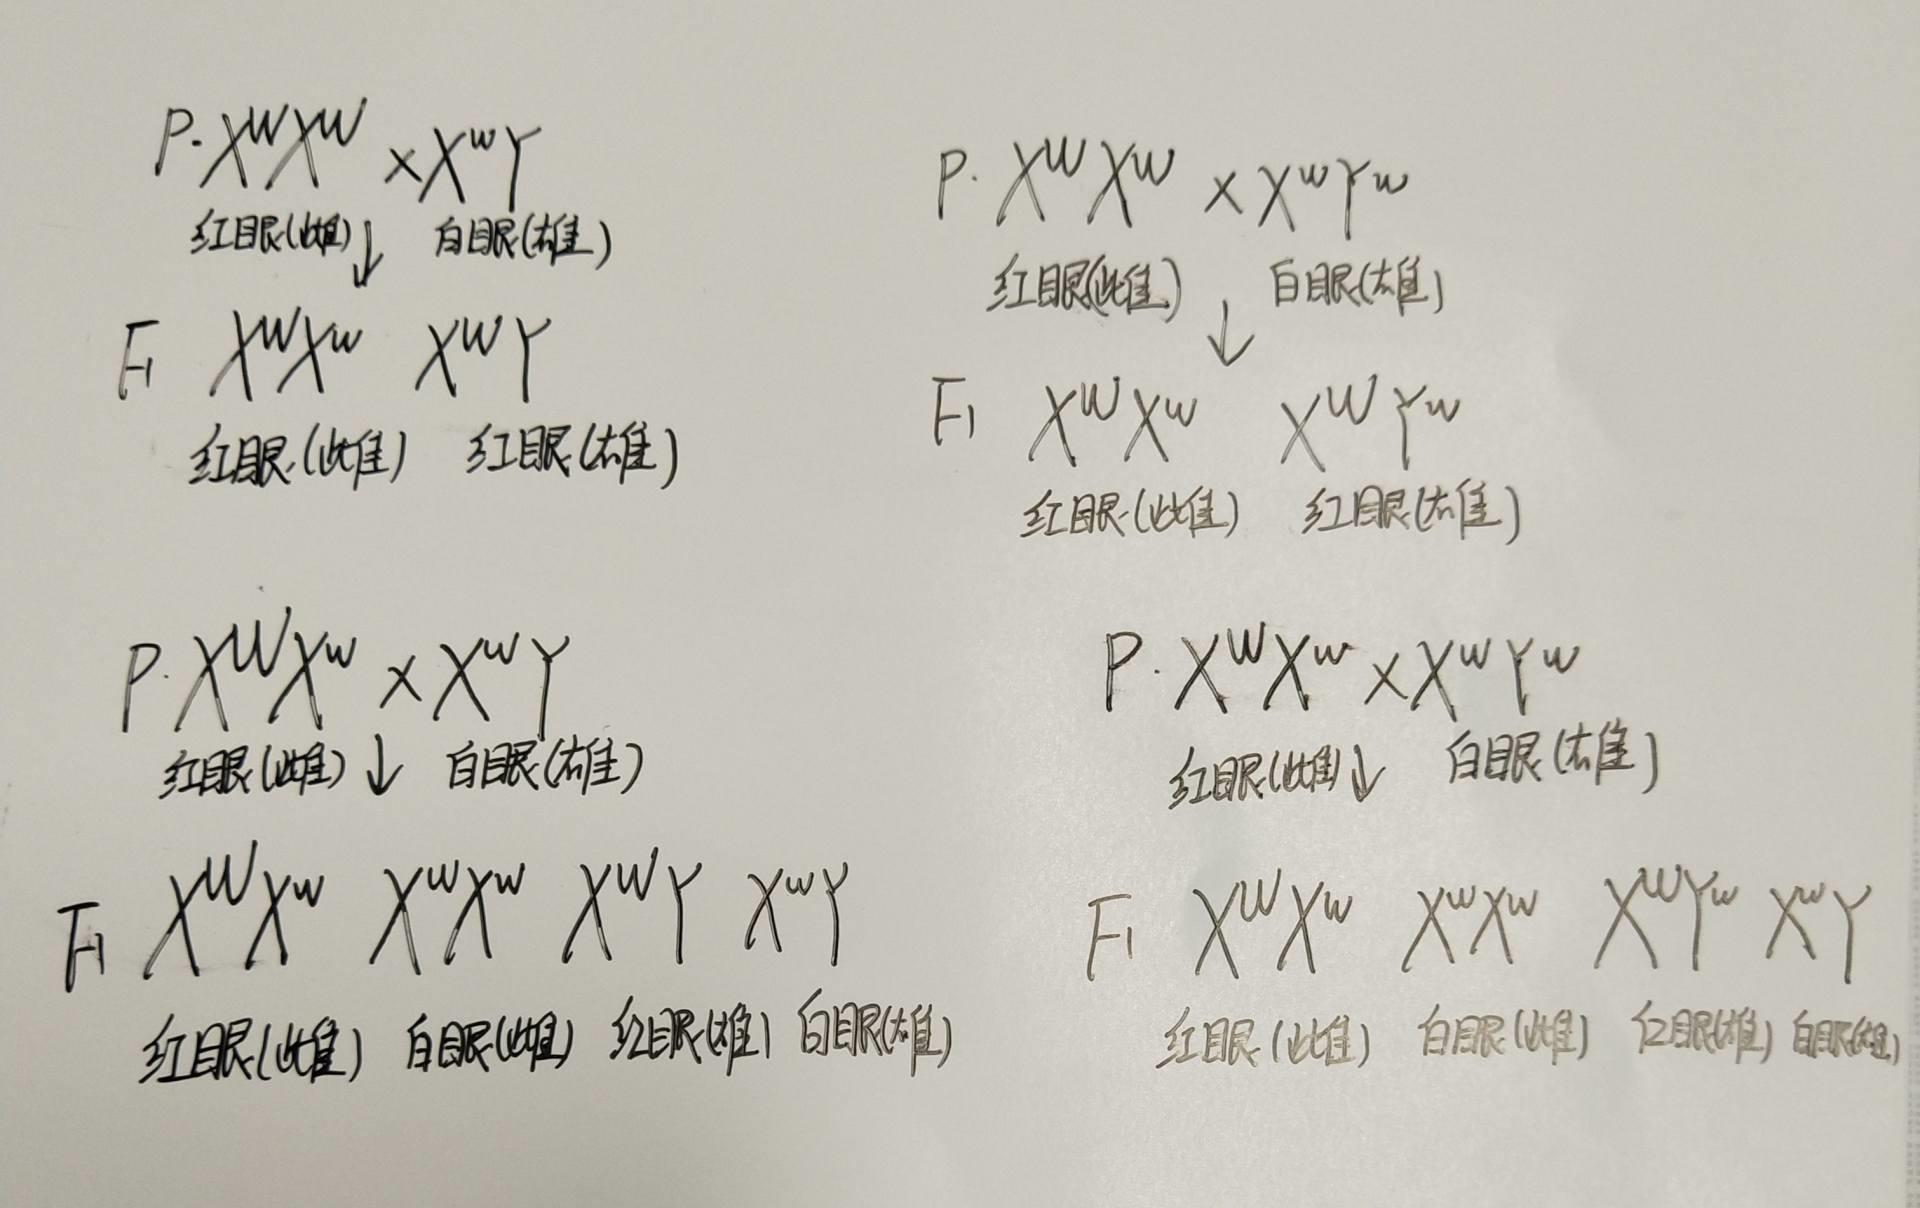 P. X^W X^W × X^w Y
红眼(雌) ↓ 白眼(雄)
F1 X^W X^w X^W Y
红眼(雌) 红眼(雄)
P. X^W X^W × X^w Y^w
红眼(雌) 白眼(雄)
↓
F1 X^W X^w X^W Y^w
红眼(雌) 红眼(雄)
P. X^W X^w × X^w Y
红眼(雌) ↓ 白眼(雄)
F1 X^W X^w X^w X^w X^W Y X^w Y
红眼(雌) 白眼(雌) 红眼(雄) 白眼(雄)
P. X^W X^w × X^w Y^w
红眼(雌) ↓ 白眼(雄)
F1 X^W X^w X^w X^w X^W Y^w X^w Y
红眼(雌) 白眼(雌) 红眼(雄) 白眼(雄)